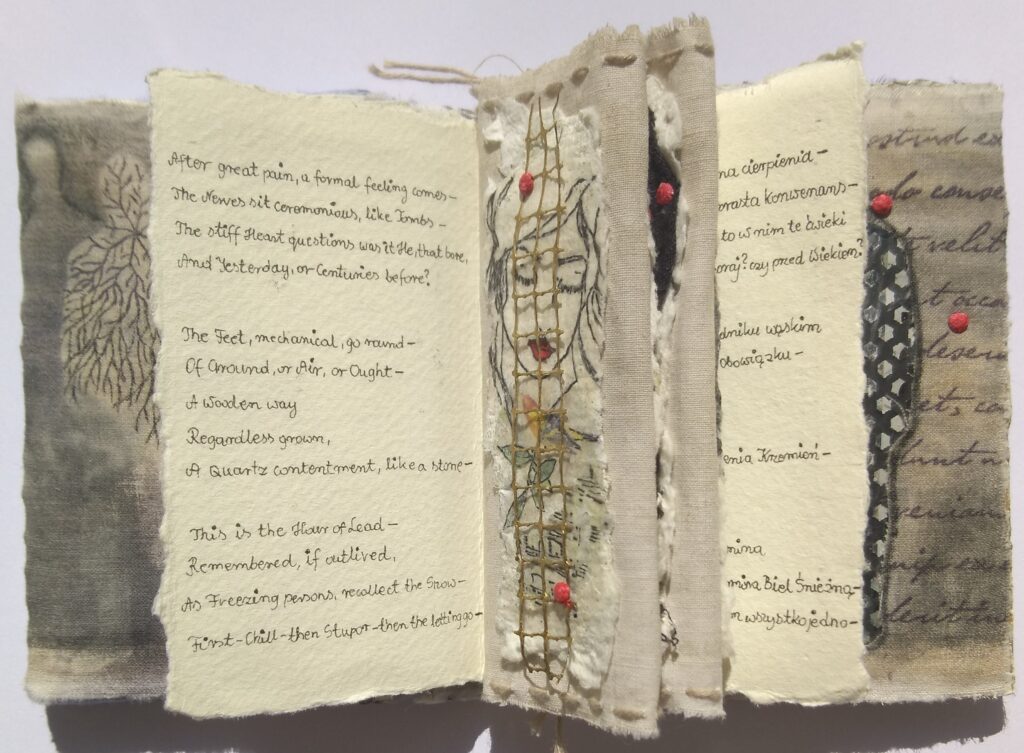 After great pain, a formal feeling comes –
The Nerves sit ceremonious, like Tombs –
The stiff Heart questions was it He, that bore,
And Yesterday, or Centuries before?
The Feet, mechanical, go round –
Of Ground, or Air, or Ought –
A Wooden way
Regardless grown,
A Quartz contentment, like a stone –
This is the Hour of Lead –
Remembered, if outlived,
As Freezing persons, recollect the Snow –
First – Chill – then Stupor – then the letting go –
na cierpienia –
orasta konwenans –
to w nim te ćwieki
oraj? czy przed Wiekiem?
dniku wąskim
obowiązku –
enia Krzemień –
mina
mina Biel Śnieżną –
m wszystko jedno –
velit
t occa
deseru
et, co
lunt n
veniam